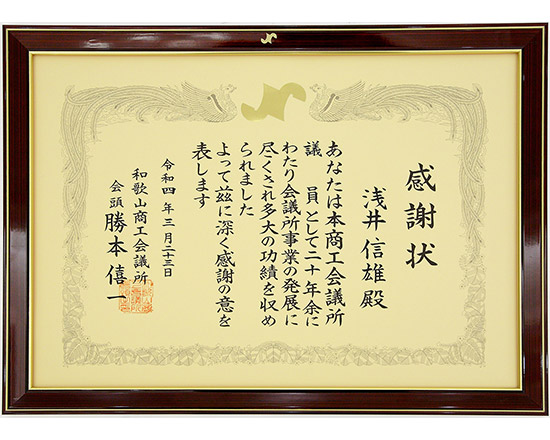 感謝状
浅井信雄殿
あなたは本商工会議所
議員として二十年余に
わたり会議所事業の発展に
尽くされ多大の功績を収め
られました
よって茲に深く感謝の意を
表します
令和四年三月二十三日
和歌山商工会議所
会頭 勝本僖一